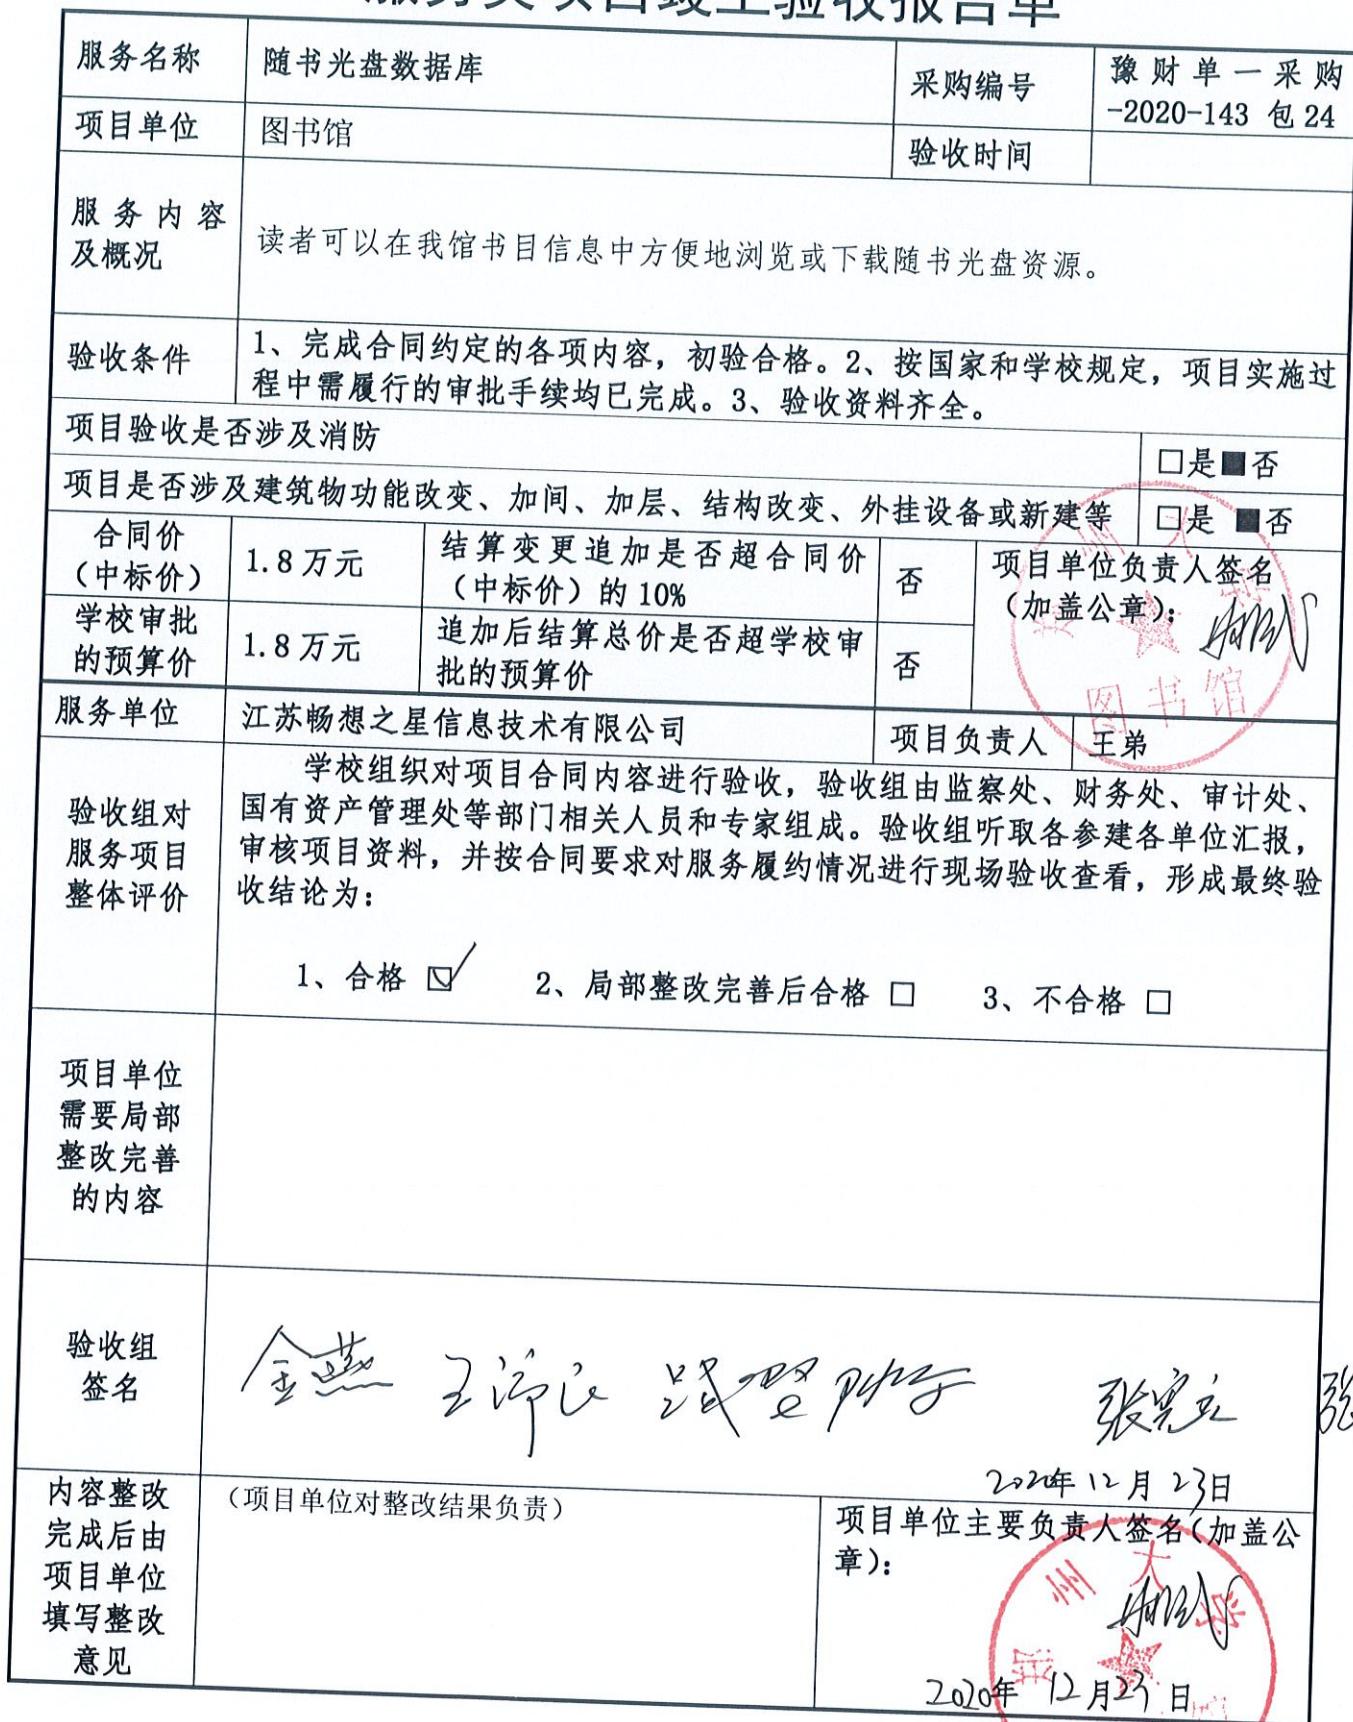 服务类项目竣工验收报告单
服务名称 随书光盘数据库 采购编号 豫财单一采购
-2020-143 包24
项目单位 图书馆 验收时间
服务内容
及概况
读者可以在我馆书目信息中方便地浏览或下载随书光盘资源。
验收条件
1、完成合同约定的各项内容，初验合格。2、按国家和学校规定，项目实施过
程中需履行的审批手续均已完成。3、验收资料齐全。
项目验收是否涉及消防 □是■否
项目是否涉及建筑物功能改变、加间、加层、结构改变、外挂设备或新建等 □是 ■否
合同价
（中标价）
1.8万元
结算变更追加是否超合同价
（中标价）的10%
否
项目单位负责人签名
（加盖公章）：
学校审批
的预算价
1.8万元
追加后结算总价是否超学校审
批的预算价
否
郑州大学
图书馆
服务单位 江苏畅想之星信息技术有限公司 项目负责人 王弟
验收组对
服务项目
整体评价
学校组织对项目合同内容进行验收，验收组由监察处、财务处、审计处、
国有资产管理处等部门相关人员和专家组成。验收组听取各参建各单位汇报，
审核项目资料，并按合同要求对服务履约情况进行现场验收查看，形成最终验
收结论为：
1、合格 ☑ 2、局部整改完善后合格 □ 3、不合格 □
项目单位
需要局部
整改完善
的内容
验收组
签名
金燕 张宪立 张
2020年12月23日
内容整改
完成后由
项目单位
填写整改
意见
（项目单位对整改结果负责）
项目单位主要负责人签名（加盖公
章）：
郑州大学
2020年12月23日